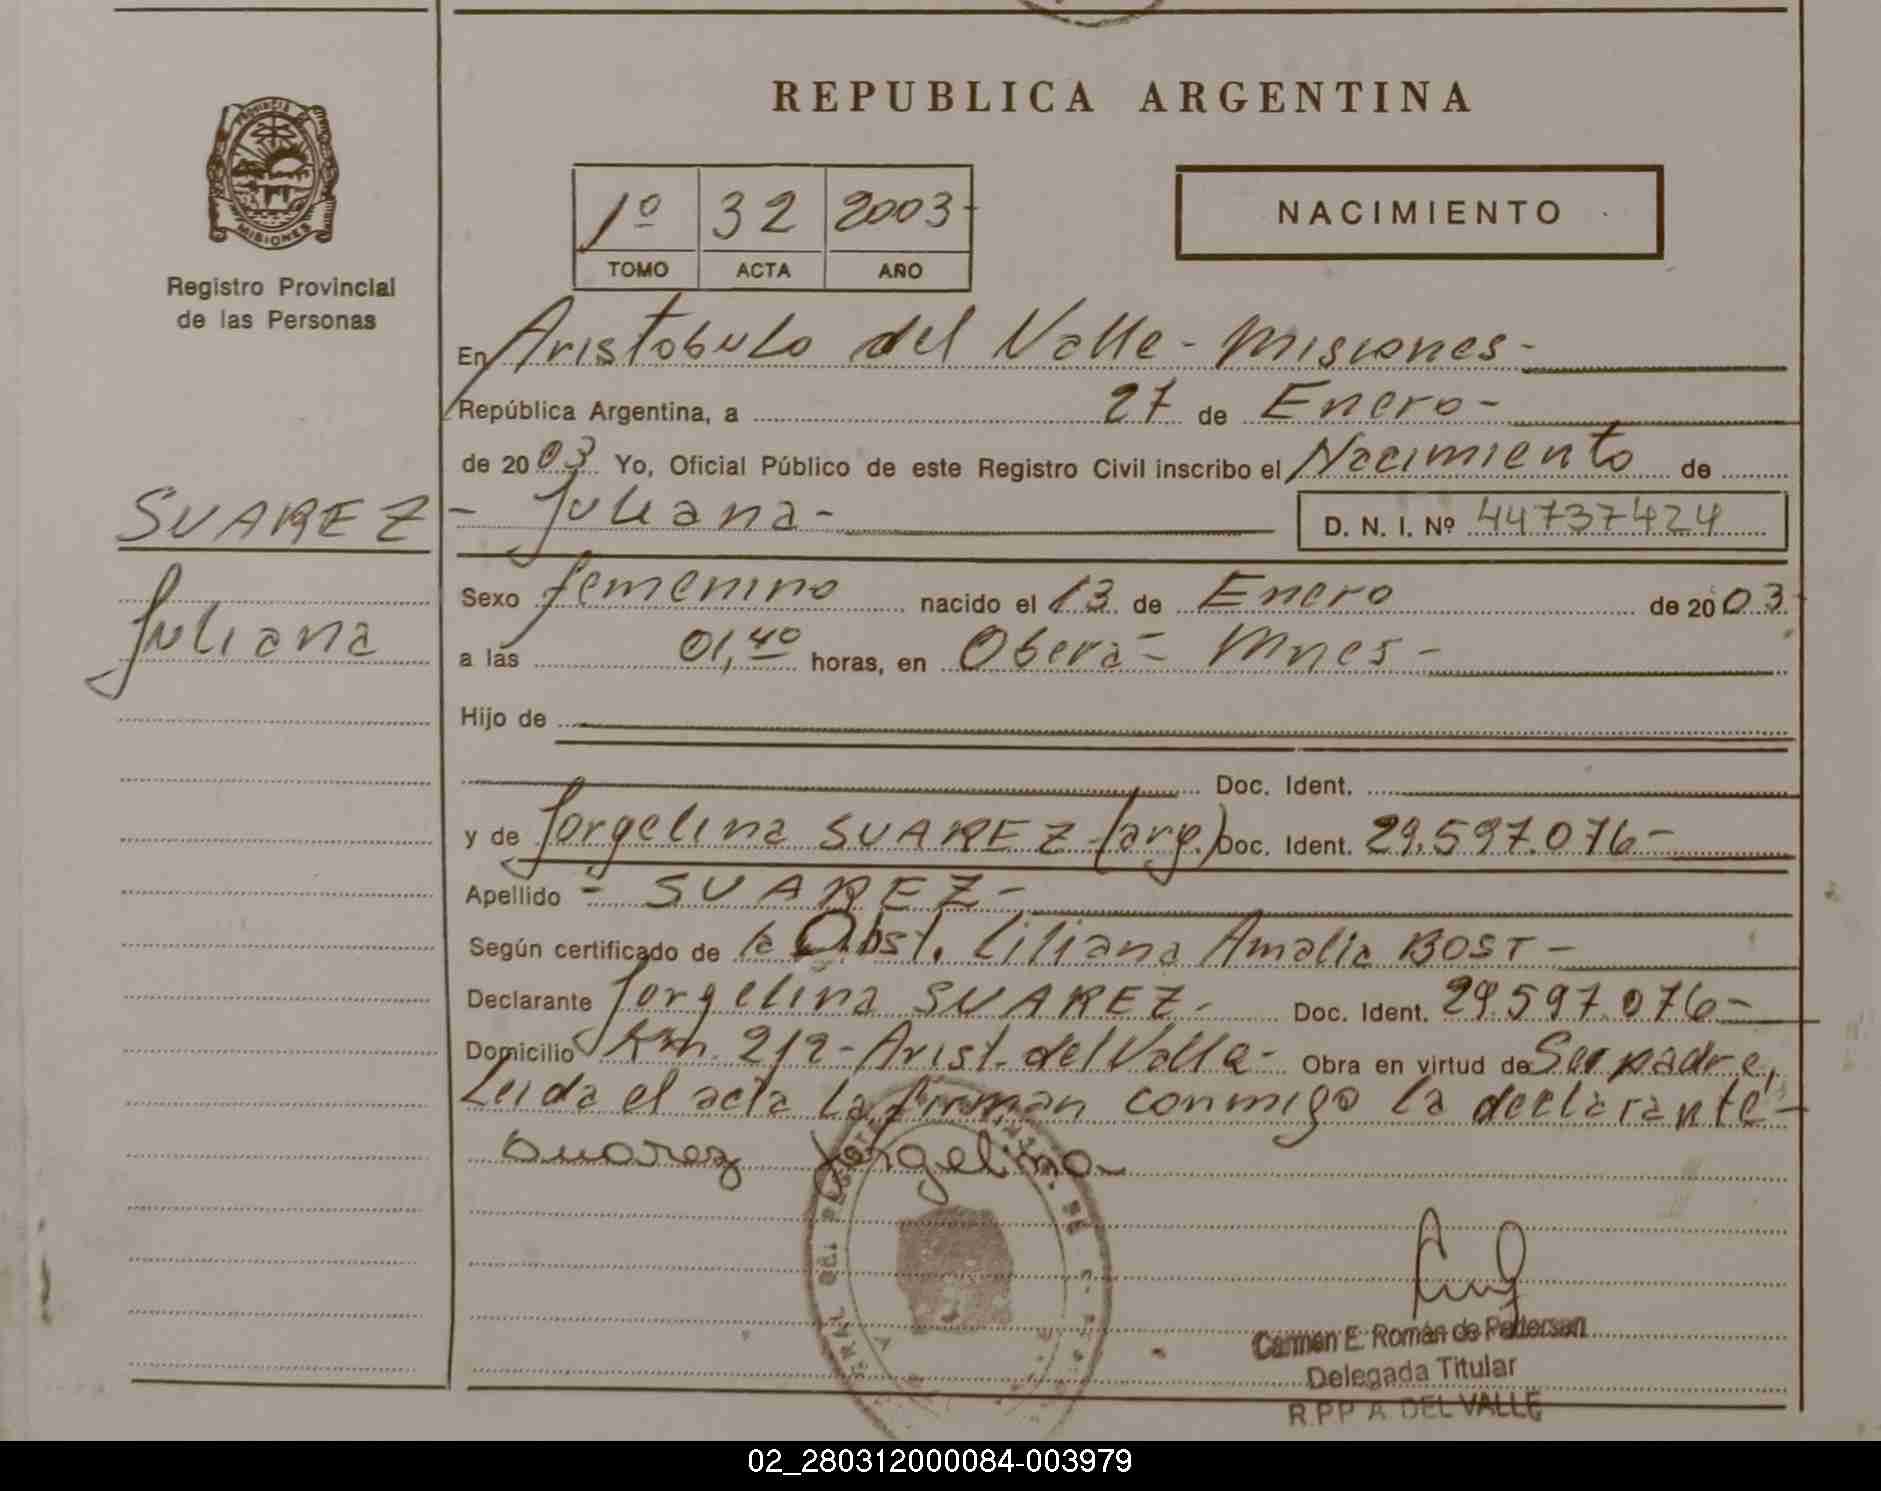 REPUBLICA ARGENTINA
PROVINCIA DE
MISIONES
Registro Provincial
de las Personas
1º 32 2003-
TOMO ACTA AÑO
NACIMIENTO
En Aristobulo del Valle - Misiones -
República Argentina, a 27 de Enero -
de 2003 Yo, Oficial Público de este Registro Civil inscribo el Nacimiento de
SUAREZ - Juliana -
D. N. I. Nº 44737424
Juliana
Sexo femenino nacido el 13 de Enero de 2003
a las 01,40 horas, en Oberá - Mnes -
Hijo de
Doc. Ident.
y de Jorgelina SUAREZ (arg.) Doc. Ident. 29.597.076-
Apellido - SUAREZ -
Según certificado de la Obst. Liliana Amalia BOST -
Declarante Jorgelina SUAREZ - Doc. Ident. 29.597.076-
Domicilio Km. 212 - Arist. del Valle - Obra en virtud de Ser padre,
Leida el acta la firman conmigo la declarante -
Suarez Jorgelina
Carmen E. Román de Pedersen
Delegada Titular
R.P.P. A. DEL VALLE
02_280312000084-003979